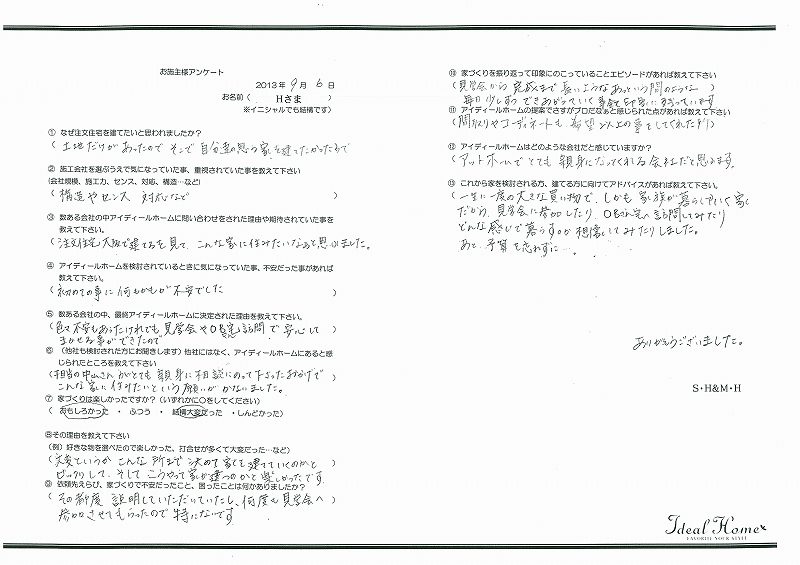 お施主様アンケート
2013年 9月 6日
お名前 ( Hさま )
※イニシャルでも結構です)
① なぜ注文住宅を建てたいと思われましたか?
( 土地だけがあったので そこで自分達の思う家を建てたかったので )
② 施工会社を選ぶうえで気になっていた事、重視されていた事を教えて下さい
(会社規模、施工力、センス、対応、構造…など)
( 構造やセンス 対応など )
③ 数ある会社の中アイディールホームに問い合わせをされた理由や期待されていた事を
教えて下さい。
( 注文住宅大阪で建てるを見て、こんな家に住みたいなぁと思いました。
④ アイディールホームを検討されているときに気になっていた事、不安だった事があれば
教えて下さい。
( 初めての事に何もかもが不安でした )
⑤ 数ある会社の中、最終アイディールホームに決定された理由を教えて下さい。
(色々不安もあったけれども見学会やOB宅訪問で安心して
まかせる事ができたので )
⑥ (他社も検討された方にお聞きします) 他社にはなく、アイディールホームにあると感
じられたところを教えて下さい
(担当の中山さんがとても親身に相談にのって下さったおかげで
こんな家に住みたいという願いがかないました。 )
⑦ 家づくりは楽しかったですか? (いずれかに○をしてください)
( おもしろかった ・ ふつう ・ 結構大変だった ・しんどかった)
⑧その理由を教えて下さい
(例) 好きな物を選べたので楽しかった、打合せが多くて大変だった…など)
(大変というか こんな所まで決めて家を建てていくのかと
ビックリして、そして こうやって家が建つのかと楽しかったです
⑨ 依頼先えらび、家づくりで不安だったこと、困ったことは何かありましたか?
( その都度 説明していただいていたし、何度も見学会へ
参加させてもらったので特にないです )
⑩ 家づくりを振り返って印象にのこっていることエピソードがあれば教えて下さい
( 見学会から 完成まで 長いようなあっという間のような
毎日少しずつできあがっていく
⑪ アイディールホームの提案でさすがプロだなぁと感じられた点があれば教えて下さい
(間取りやコーディネートも希望以上の事をしてくれた所)
⑫ アイディールホームはどのような会社だと感じていますか?
( アットホームでとても親身になってくれる会社だと思います。
⑬ これから家を検討される方、建てる方に向けてアドバイスがあれば教えて下さい。
( 一生に一度の大きな買い物で、しかも家族が暮らしていく家
だから、見学会に参加したり、OBさん宅へ訪問してみたり
どんな感じで暮らすのか想像してみたりしました。
あと、予算を忘れずに…。 )
ありがとうございました。
S・H&M・H
Ideal Home
FAVORITE YOUR STYLE